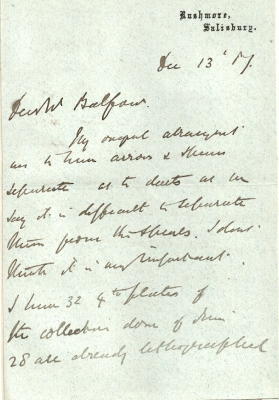 Rushmore,
Salisbury.
Dec 13
Dear Mr Balfour.
My original arrangement
was to have arrows & spears
separate as to darts as you
say it is difficult to separate
them from the spears. I don't
think it is very important.
I have 32 4to plates of
the collection done of
28 are already lithographed